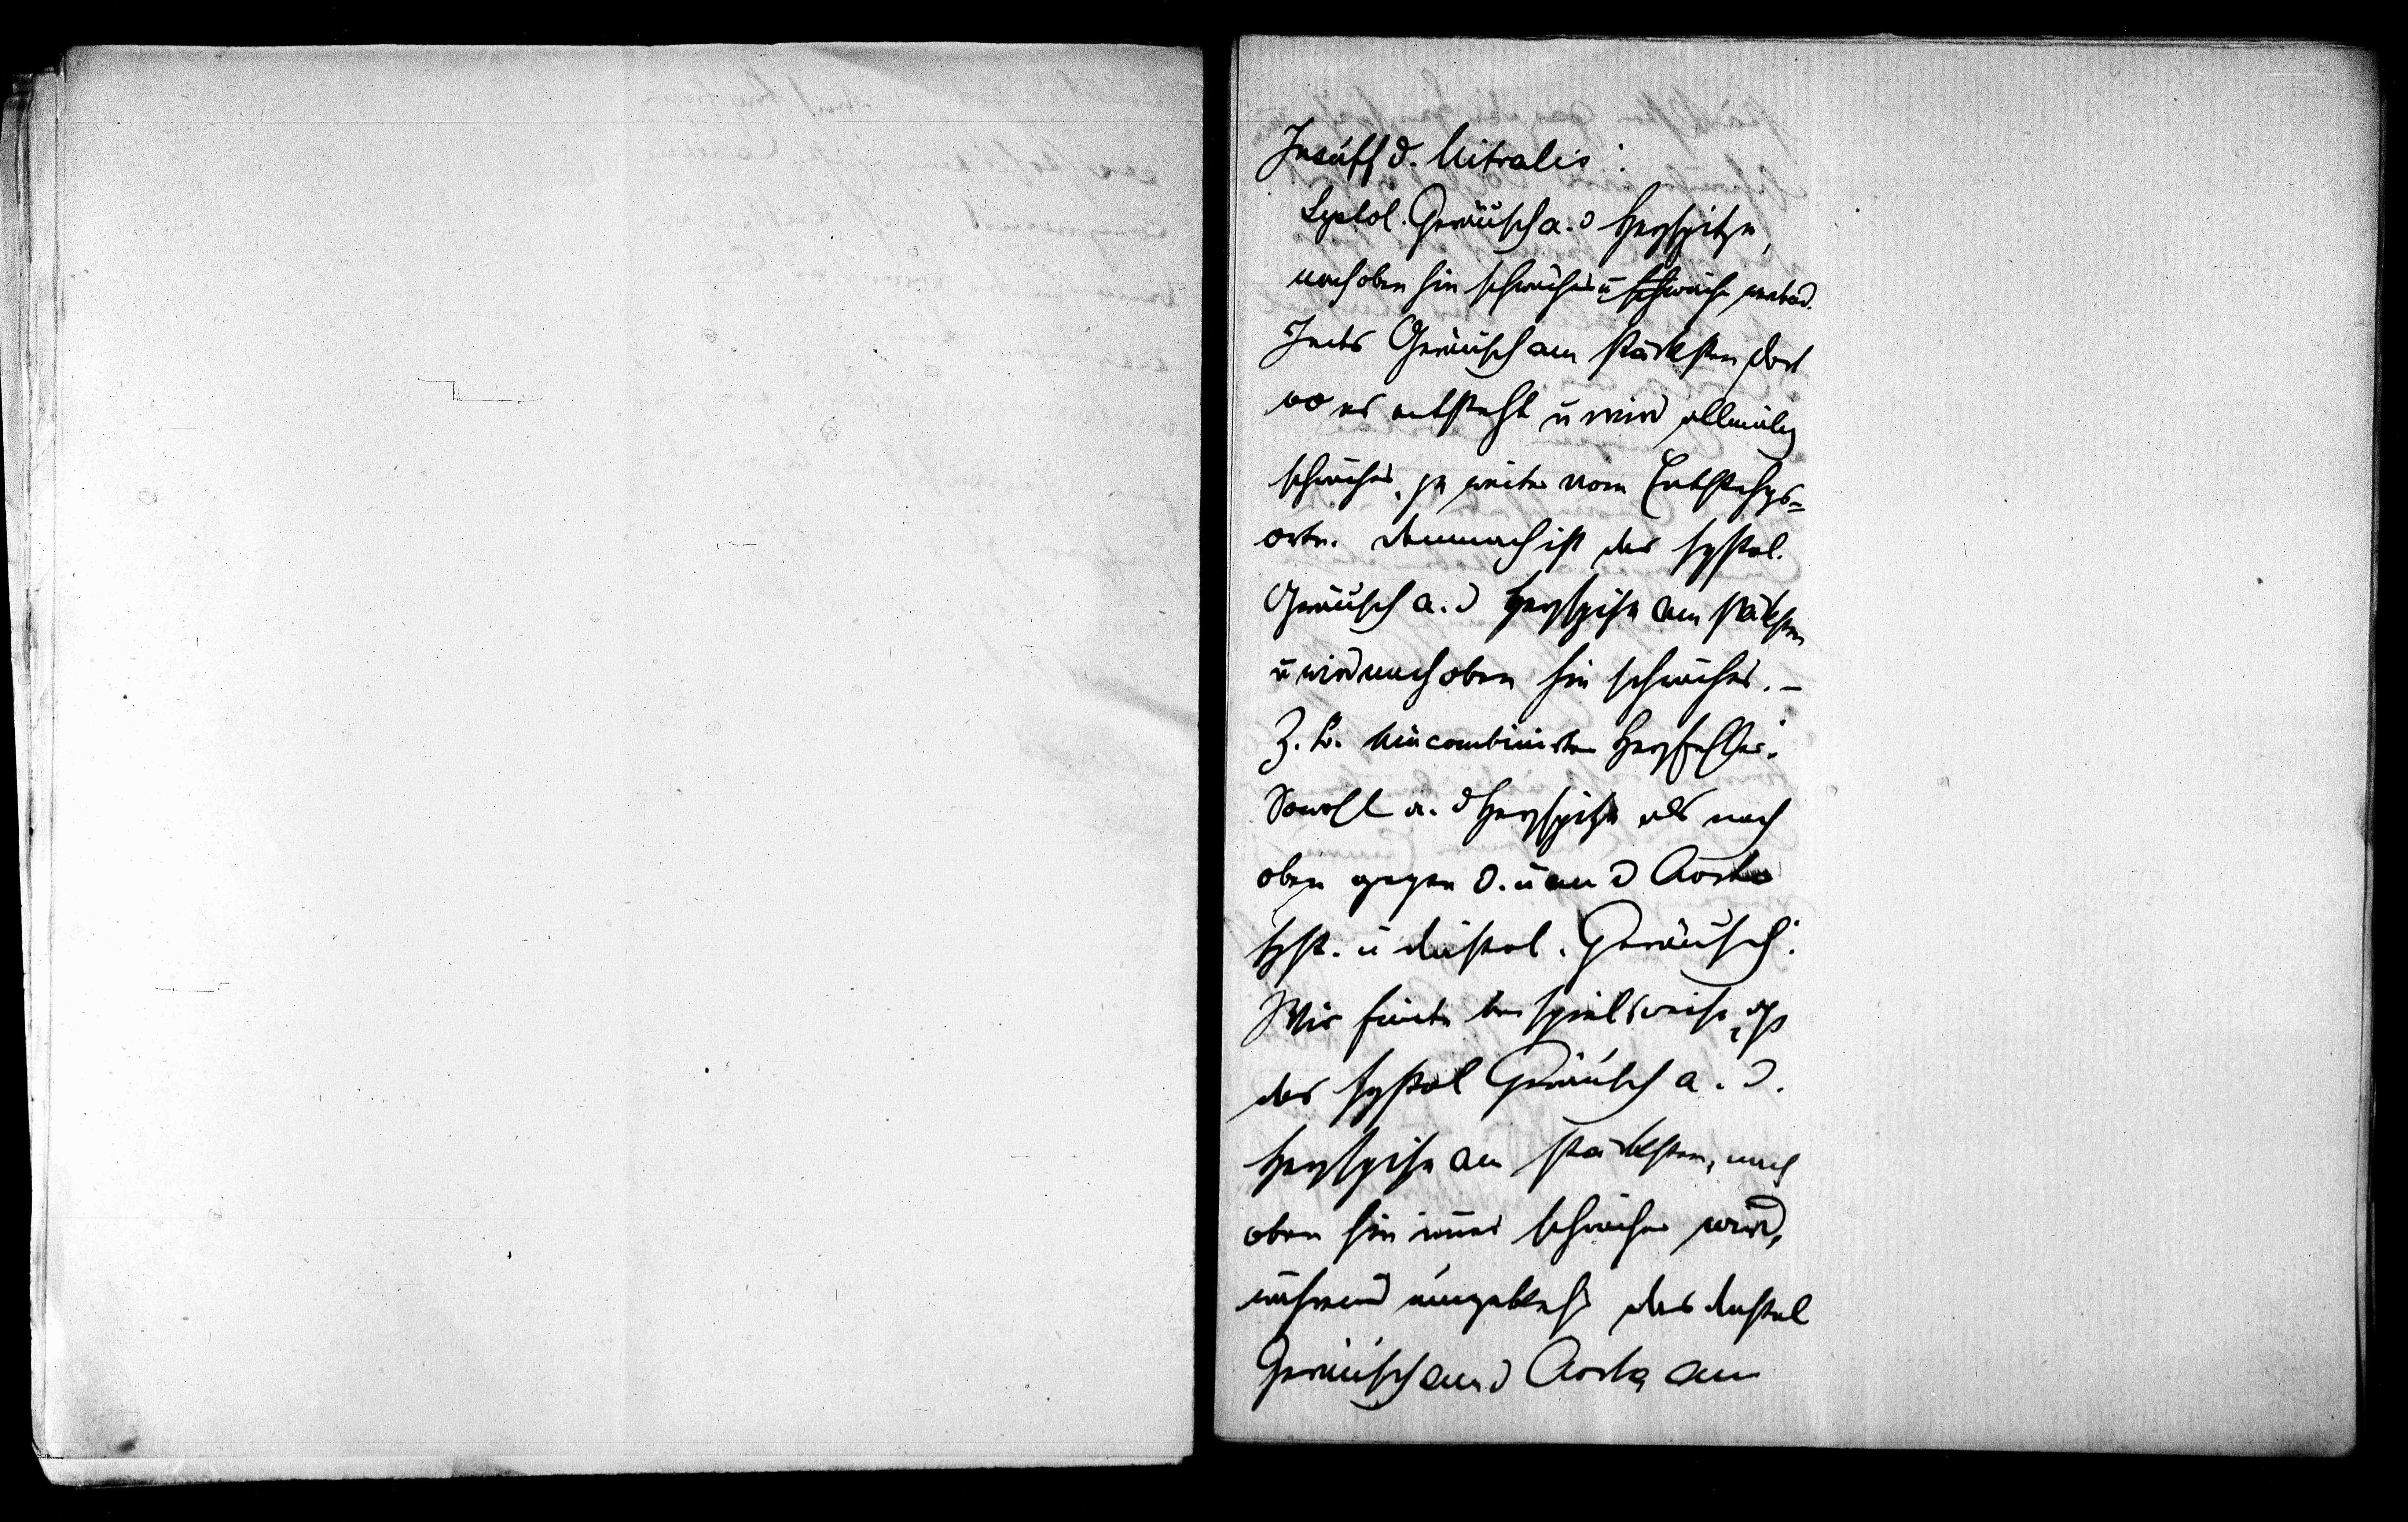 Insuff d. Mitralis:
Systol. Geräusch a. d Herzspitze,
nach oben hin schwächer u schwächer werdend.
Jedes Geräusch am stärksten dort
wo es entsteht u wird allmälig
schwächer, je weiter vom Entstehgs=
orte. Demnach ist das systol.
Geräusch a. d Herzspitze am stärksten
u wird nach oben hin schwächer. –
Z. B. combinirten Herzfehler:
Sowohl a. d Herzspitze als nach
oben gegen d. u an d Aorta
syst. u diastol. Geräusch:
Wir finden beispielsweise, dß
das systol Geräusch a. d.
Herzspitze am stärksten, nach
oben hin immer schwächer wird,
während umgekehrt das diastol
Geräusch an d Aorta am